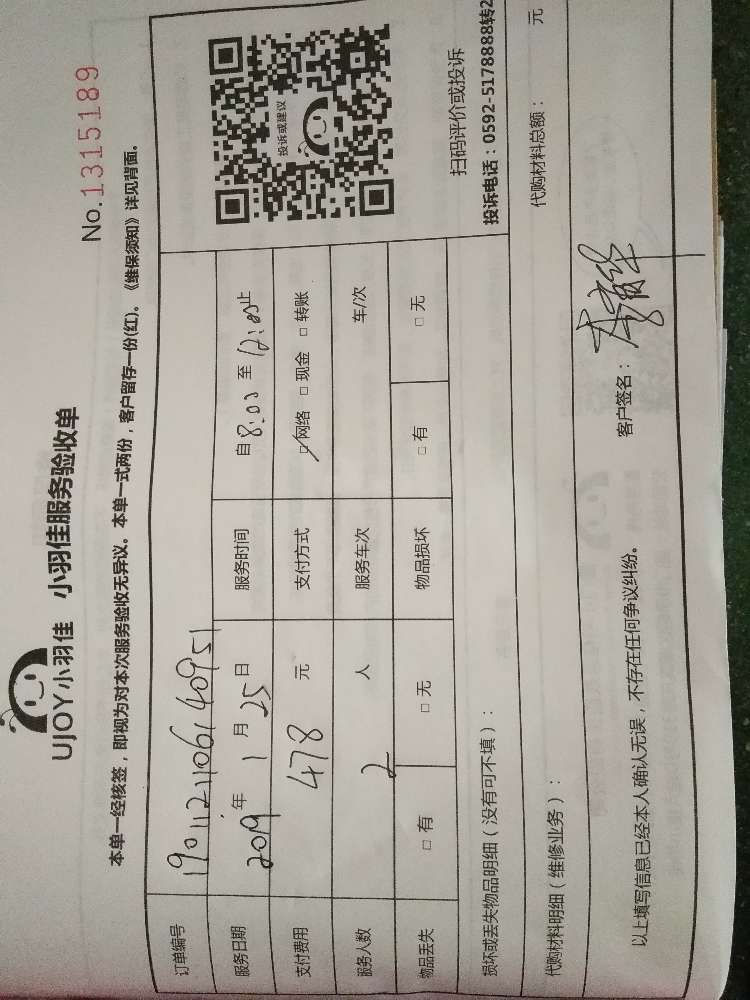 UJOY小羽佳 小羽佳服务验收单
No.1315189
本单一经核签，即视为对本次服务验收无异议。本单一式两份，客户留存一份(红)。《维保须知》详见背面。
订单编号 1901121106140951
服务日期 2019 年 1 月 25 日 服务时间 自 8:00 至 12:00 止
支付费用 478 元 支付方式 □网络 □现金 □转账
服务人数 2 人 服务车次 车/次
物品丢失 □有 □无 物品损坏 □有 □无
投诉或建议
扫码评价或投诉
投诉电话：0592-5178888转2
损坏或丢失物品明细（没有可不填）：
代购材料明细（维修业务）： 代购材料总额： 元
以上填写信息已经本人确认无误，不存在任何争议纠纷。 客户签名：